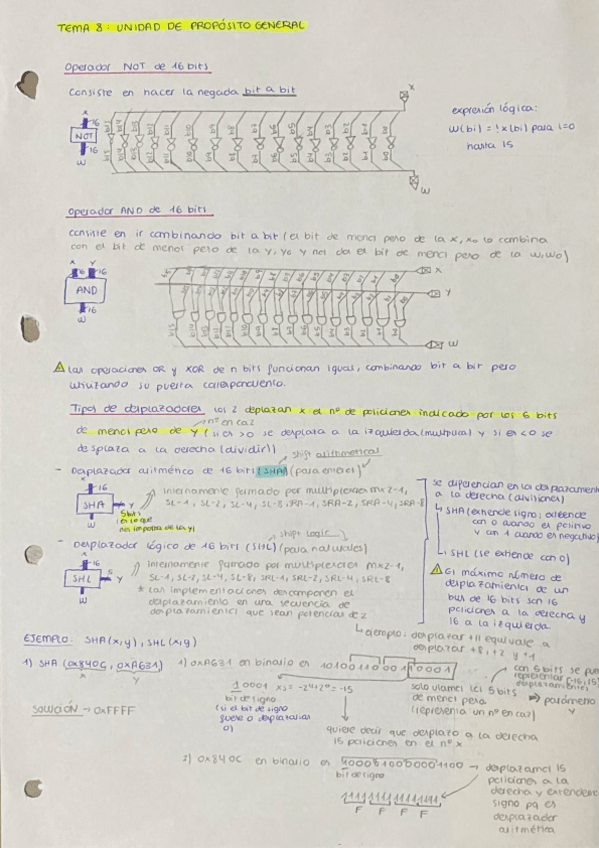 TEMA 8: UNIDAD DE PROPÓSITO GENERAL
Operador NOT de 16 bits
Consiste en hacer la negada bit a bit
X
16
NOT
16
W
X
W
expresión lógica:
W(bi) = !X(bi) para i=0
hasta 15
Operador AND de 16 bits
Consiste en ir combinando bit a bit (el bit de menor peso de la X, X0 lo combina
con el bit de menor peso de la Y, Y0 y nos da el bit de menor peso de la W, W0)
X Y
16 16
AND
16
W
X
Y
W
Las operaciones OR y XOR de n bits funcionan igual, combinando bit a bit pero
utilizando su puerta correspondiente.
Tipos de desplazadores los 2 desplazan X el nº de posiciones indicado por los 5 bits
de menor peso de Y (si es >0 se desplaza a la izquierda (multiplicar) y si es <0 se
nº en ca2
desplaza a la derecha (dividir))
shift arithmetical
- Desplazador aritmético de 16 bits (SHA) (para enteros)
16
SHA
Y
5 bits
es lo que
nos importa de la Y
16
W
internamente formado por multiplexores mx2-1,
SL-1, SL-2, SL-4, SL-8, SRA-1, SRA-2, SRA-4, SRA-8
shift logic
- Desplazador lógico de 16 bits (SHL) (para naturales)
16
SHL
5 Y
16
W
internamente formado por multiplexores mx2-1,
SL-1, SL-2, SL-4, SL-8, SRL-1, SRL-2, SRL-4, SRL-8
* Las implementaciones descomponen el
desplazamiento en una secuencia de
desplazamientos que sean potencias de 2
ejemplo: desplazar +11 equivale a
desplazar +8, +2 y +1
se diferencian en los desplazamientos
a la derecha (divisiones)
SHA (extiende signo: extiende
con 0 cuando es positivo
y con 1 cuando es negativo)
SHL (se extiende con 0)
El máximo número de
desplazamientos de un
bus de 16 bits son 16
posiciones a la derecha y
16 a la izquierda
EJEMPLO: SHA(x,y), SHL(x,y)
1) SHA (0x840C, 0xA631)
X Y
1) 0xA631 en binario es 1010011000110001
10001 Xs = -2^4+2^0 = -15
bit de signo
(si el bit de signo
fuese 0 desplazarías
0)
solo usamos los 5 bits
de menor peso
(representa un nº en ca2)
con 5 bits se pueden
representar [-16,15]
desplazamientos
parámetro
Y
SOLUCIÓN → 0xFFFF
quiere decir que desplazo a la derecha
15 posiciones en el nº X
2) 0x840C en binario es 1000010000001100 → desplazamos 15
posiciones a la
derecha y extendemos
signo pq es
desplazador
aritmético
bit de signo
1111 1111 1111 1111
F F F F